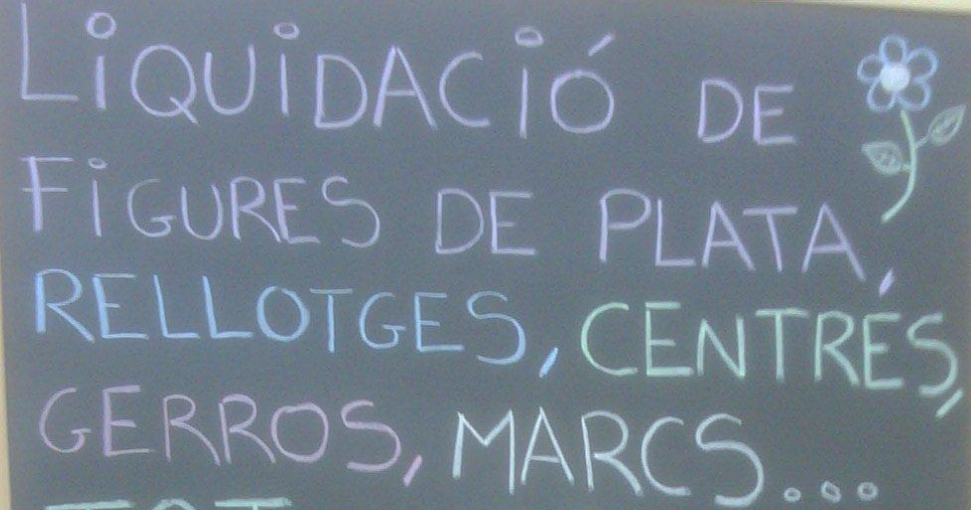 LiQUiDACiÓ DE
FiGURES DE PLATA,
RELLOTGES, CENTRES,
GERROS, MARCS...